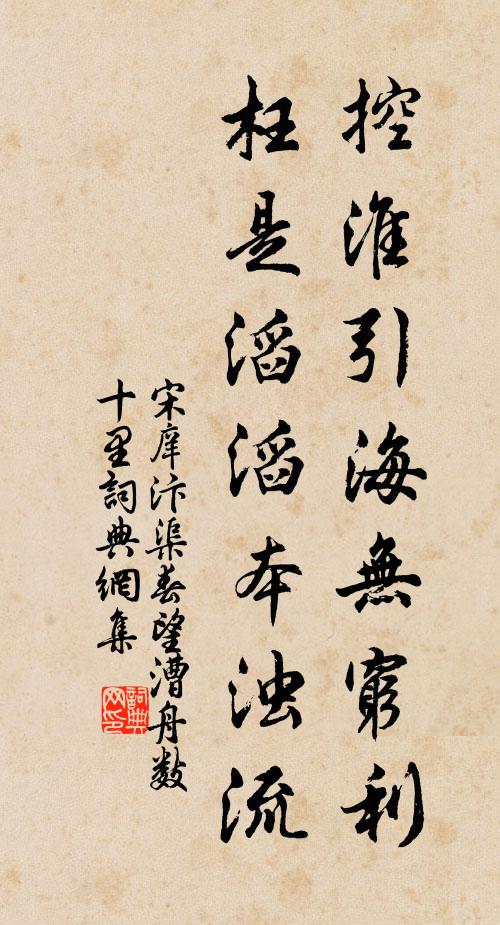 控淮引海無窮利
枉是滔滔本浊流
宋庠汴渠春望漕舟数
十里詞典網集
詞典
网印